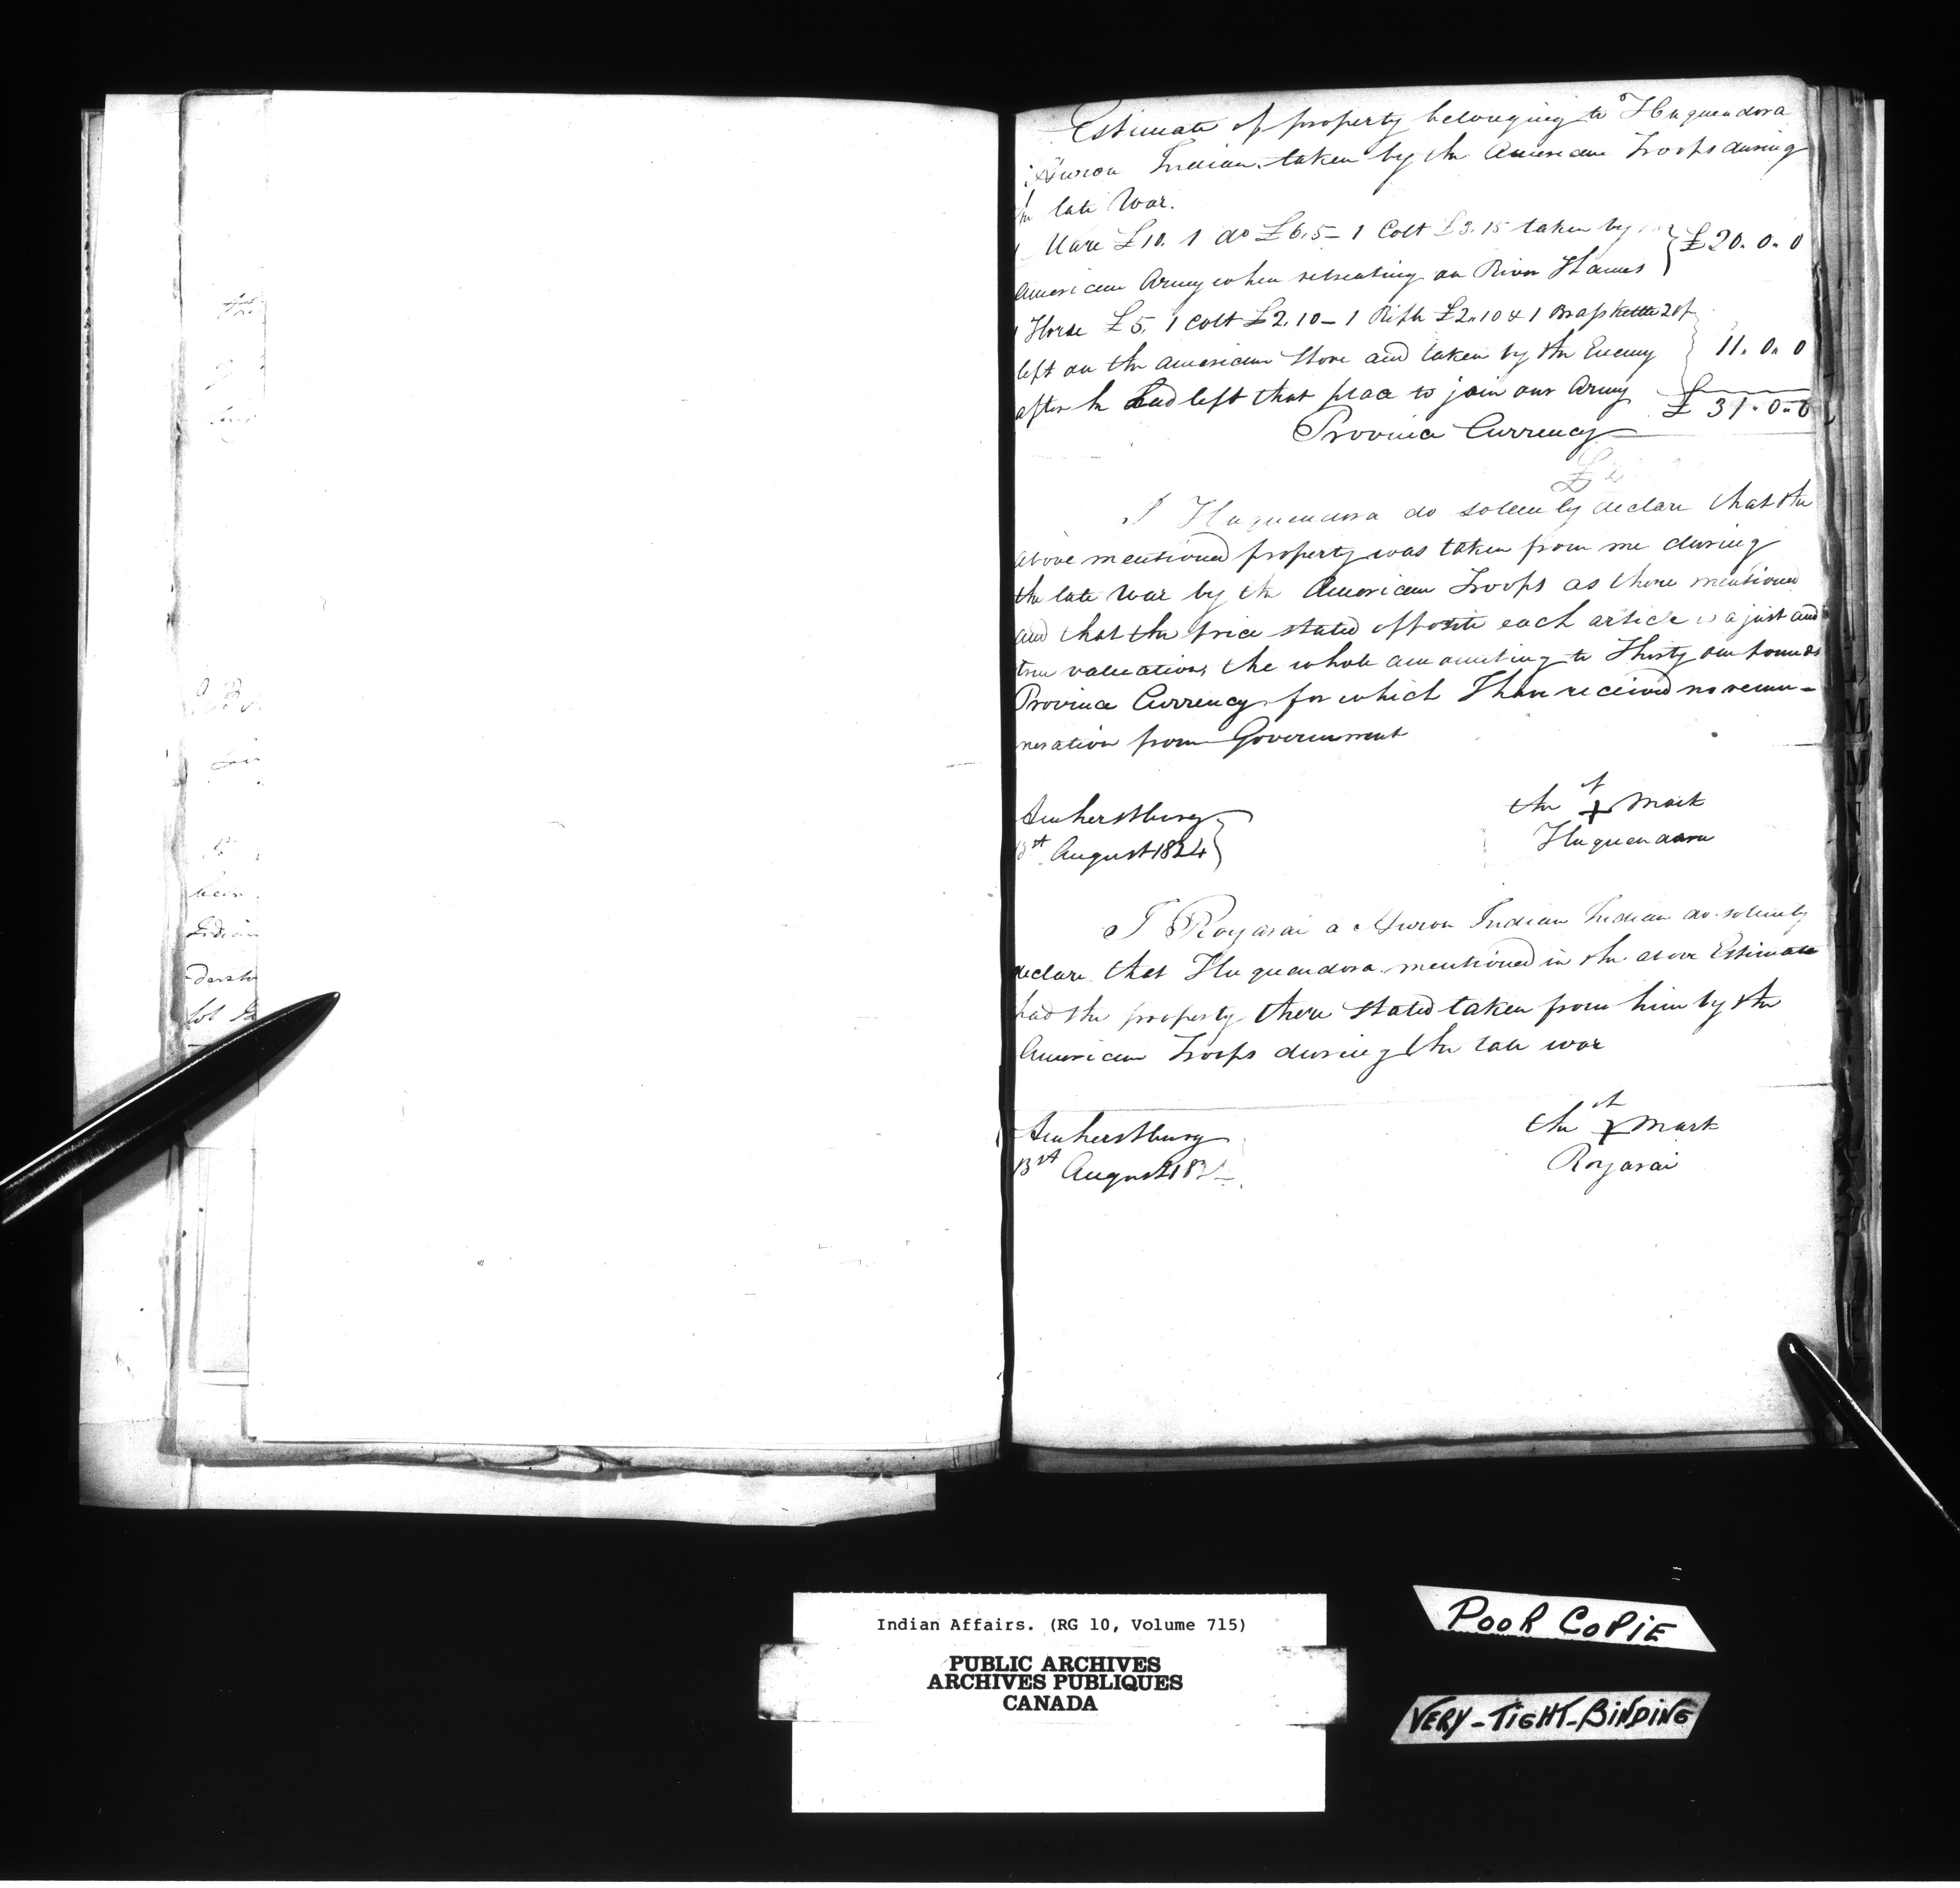 Estimate of property belonging to Huquendora
a Huron Indian taken by the American Troops during
the late War.
1 Mare £10. 1 do £6.5 - 1 Colt £3.15 taken by the } £20.0.0
American Army when retreating on River Thames
1 Horse £5. 1 Colt £2.10 - 1 Rifle £2.10 & 1 Brass kettle 20/
left on the American Shore and taken by the Enemy } 11.0.0
after he had left that place to join our Army £31.0.0
Province Currency
I Huquendora do solemly declare that the
above mentioned property was taken from me during
the late War by the American Troops as there mentioned
and that the price stated opposite each article is a just and
true valuation, the whole amounting to Thirty one pounds
Province Currency for which I have received no remu-
neration from Government
Amherstburg
13st August 1824
the + Mark
Huquendora
I Royarai a Huron Indian Indian do solemly
declare that Huquendora mentioned in the above Estimate
had the property there stated taken from him by the
American Troops during the late war
Amherstburg
13st August 182
the + Mark
Royarai
been
Indian
Indian Affairs. (RG 10, Volume 715)
PUBLIC ARCHIVES
ARCHIVES PUBLIQUES
CANADA
POOR COPIE
VERY-TIGHT-BINDING